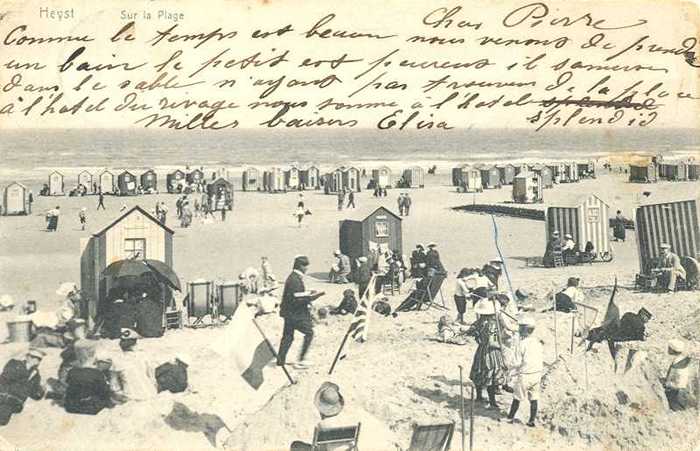 Heyst Sur la Plage
Cher Pierre
Comme le temps est beau nous venons de prendre
un bain le petit est peureux il s'amuse
dans le sable n'ayant pas trouver de la place
à l'hotel du rivage nous somme à l'hotel splendid
splendid
Milles baisers Elisa